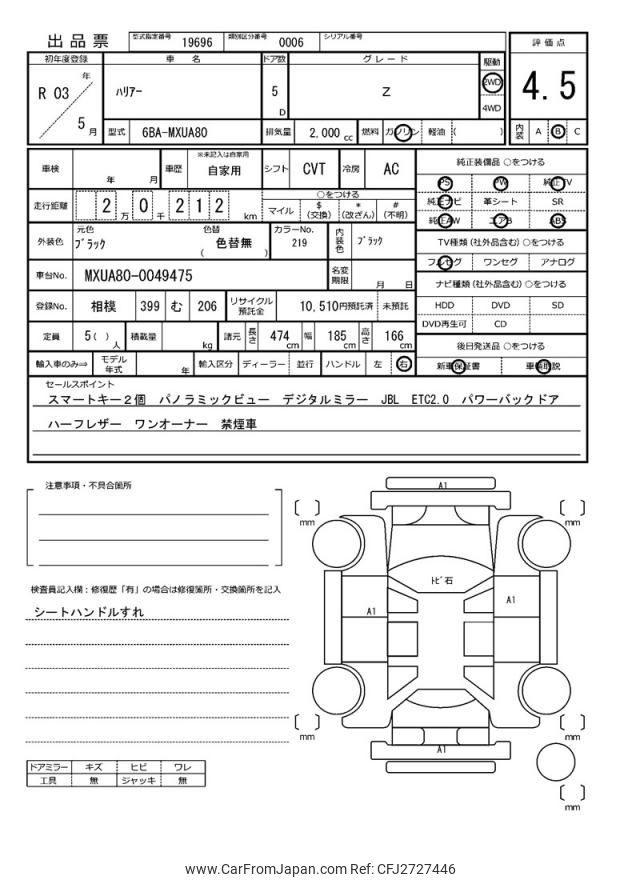 出品票 型式指定番号 19696 類別区分番号 0006 シリアル番号
評価点
4.5
内装 A B C
初年度登録 車名 ドア数 グレード 駆動
R 03 年 5 月 ハリアー 5 D Z 2WD 4WD
型式 6BA-MXUA80 排気量 2,000 cc 燃料 ガソリン 軽油 ( )
車検 年 月 車歴 ※未記入は自家用 自家用 シフト CVT 冷房 AC
走行距離 2 万 0 千 2 1 2 km
○をつける
マイル $ (交換) * (改ざん) # (不明)
外装色 元色 ブラック 色替 色替無 ( ) カラーNo. 219 内装色 ブラック
車台No. MXUA80-0049475 名変期限 月 日
登録No. 相模 399 む 206 リサイクル預託金 10,510円預託済 未預託
定員 5( ) 人 積載量 kg 諸元 長さ 474 cm 幅 185 cm 高さ 166 cm
輸入車のみ⇒ モデル年式 年 輸入区分 ディーラー 並行 ハンドル 左 右
純正装備品 ○をつける
PS PW 純正TV
純正ナビ 革シート SR
純正AW エアB ABS
TV種類 (社外品含む) ○をつける
フルセグ ワンセグ アナログ
ナビ種類 (社外品含む) ○をつける
HDD DVD SD
DVD再生可 CD
後日発送品 ○をつける
新車保証書 車輌取説
セールスポイント
スマートキー2個 パノラミックビュー デジタルミラー JBL ETC2.0 パワーバックドア
ハーフレザー ワンオーナー 禁煙車
注意事項・不具合箇所
検査員記入欄：修復歴「有」の場合は修復箇所・交換箇所を記入
シートハンドルすれ
ドアミラー キズ ヒビ ワレ
工具 無 ジャッキ 無
A1
mm
mm
トビ石
A1
A1
mm
mm
A1
mm
www.CarFromJapan.com Ref: CFJ2727446